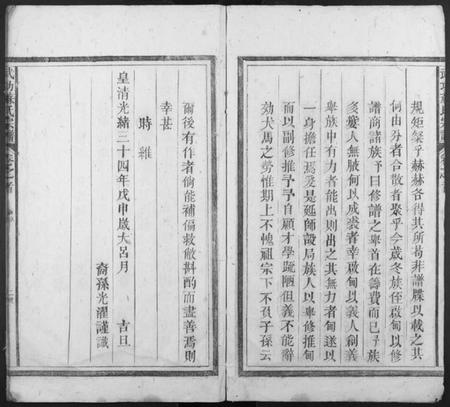 規矩粲乎赫赫各得其所苟非譜牒以載之其
何由分者合散者聚乎今歲冬族侄啟甸以修
譜商諸族予曰修譜之舉首在籌費而已予族
多愛人無腋何以成裘者幸啟甸以義人利義
舉族中有力者能出則出之其無力者甸遂以
一身擔任焉爰是延師設局族人以舉修推甸
而以副修推予予自顧才學疏陋但義不能辭
効犬馬之勞惟期上不愧祖宗下不負子孫云
爾後有作者倘能補偏救敝斟酌而盡善焉則
幸甚
時維
皇清光緒三十四年戊申歲大呂月　吉旦
裔孫光濯謹識